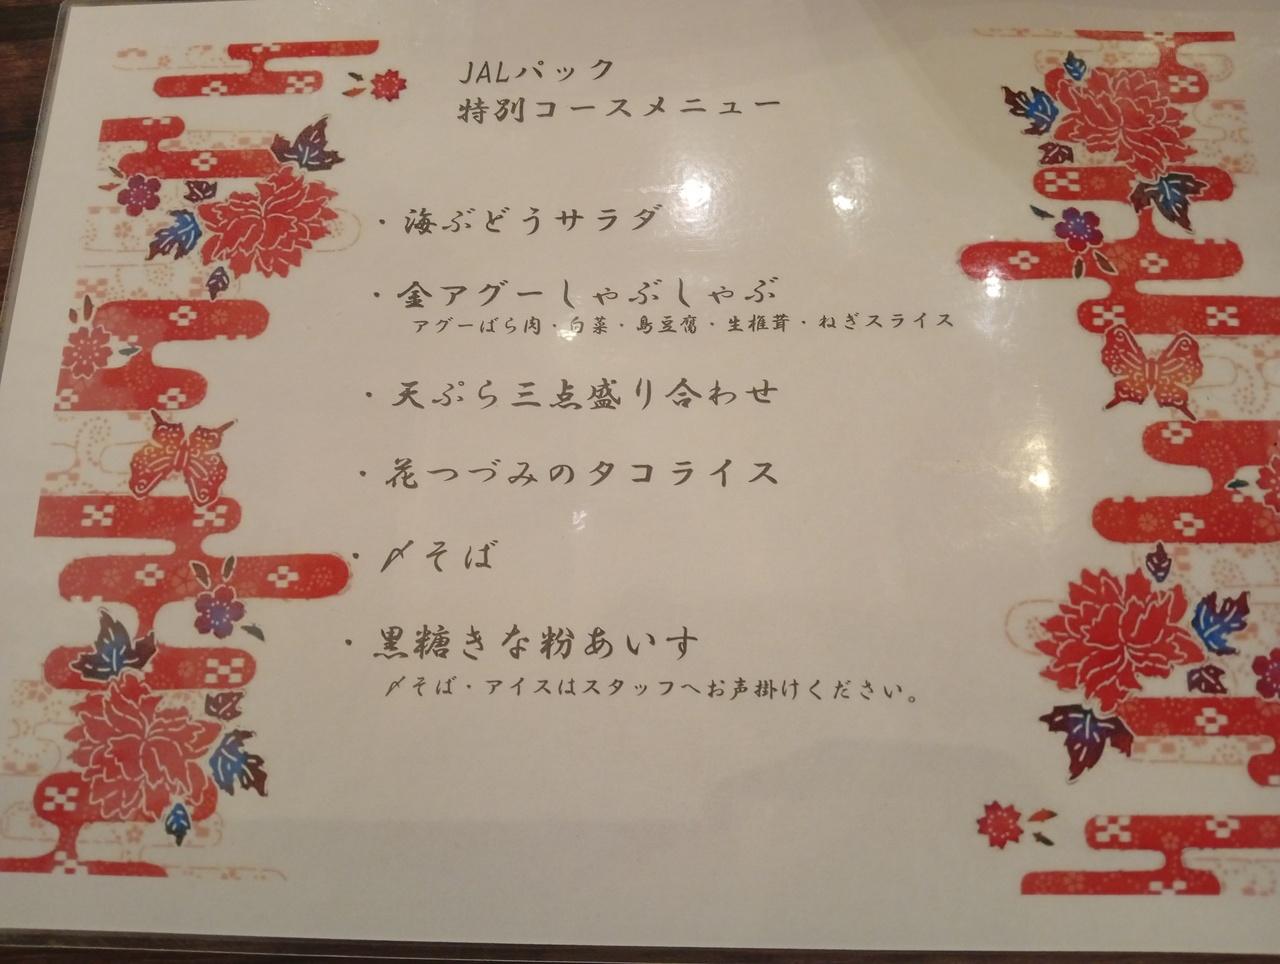 JALパック
特別コースメニュー
・海ぶどうサラダ
・金アグーしゃぶしゃぶ
アグーばら肉・白菜・島豆腐・生椎茸・ねぎスライス
・天ぷら三点盛り合わせ
・花つづみのタコライス
・〆そば
・黒糖きな粉あいす
〆そば・アイスはスタッフへお声掛けください。